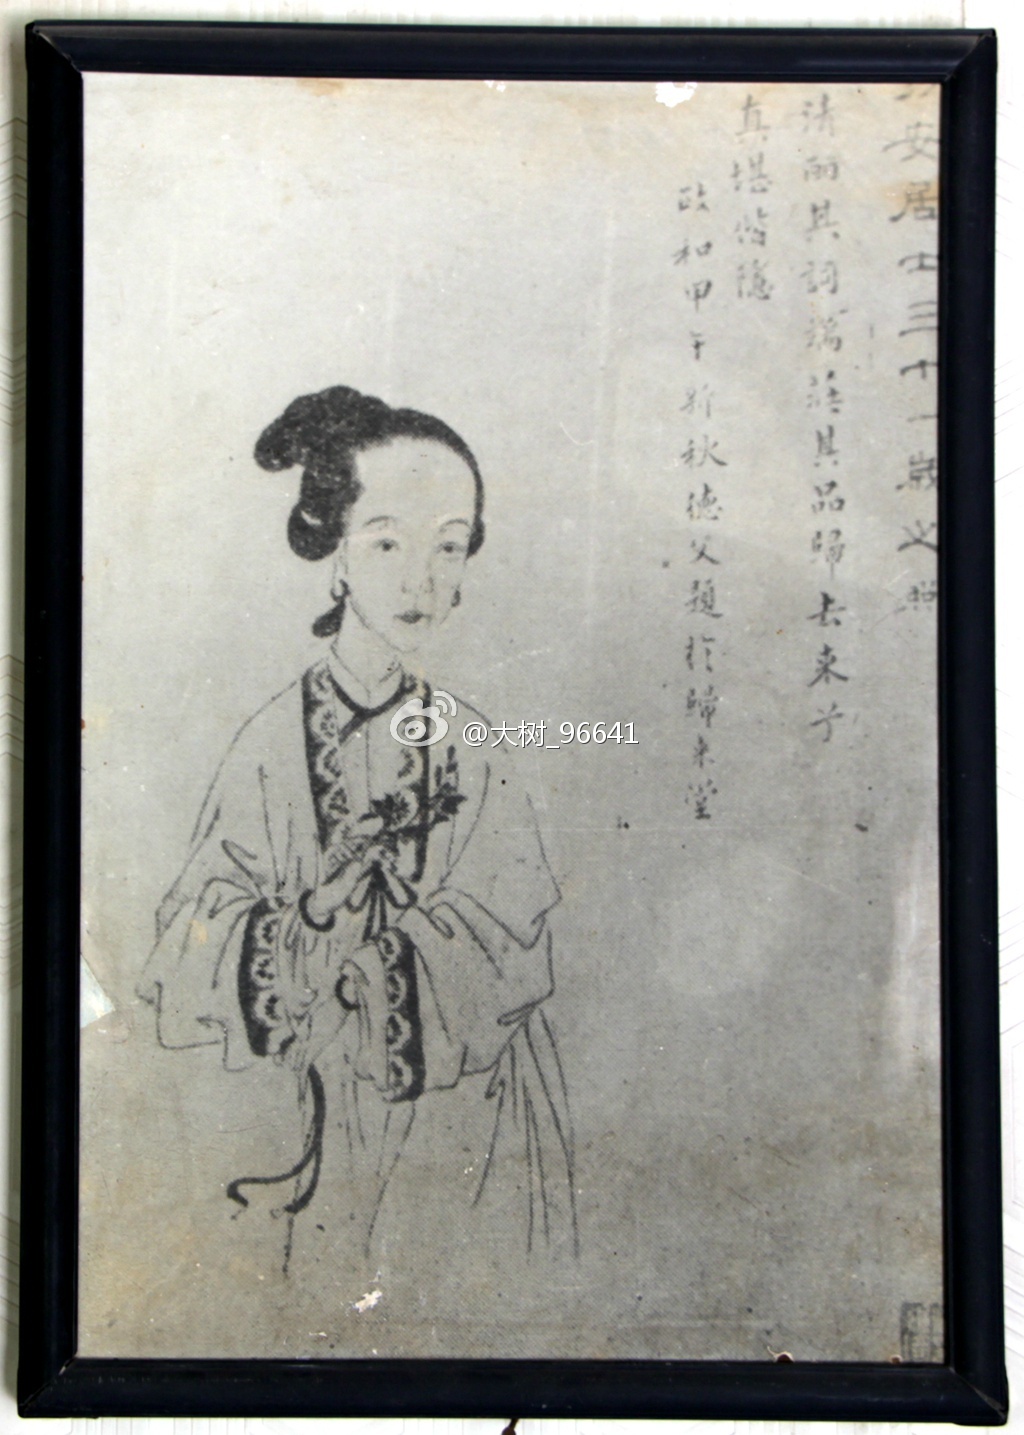 安居士三十一歲之照
清丽其詞端莊其品歸去來兮
真堪偕隱
政和甲午新秋德父題於歸來堂
@大树_96641